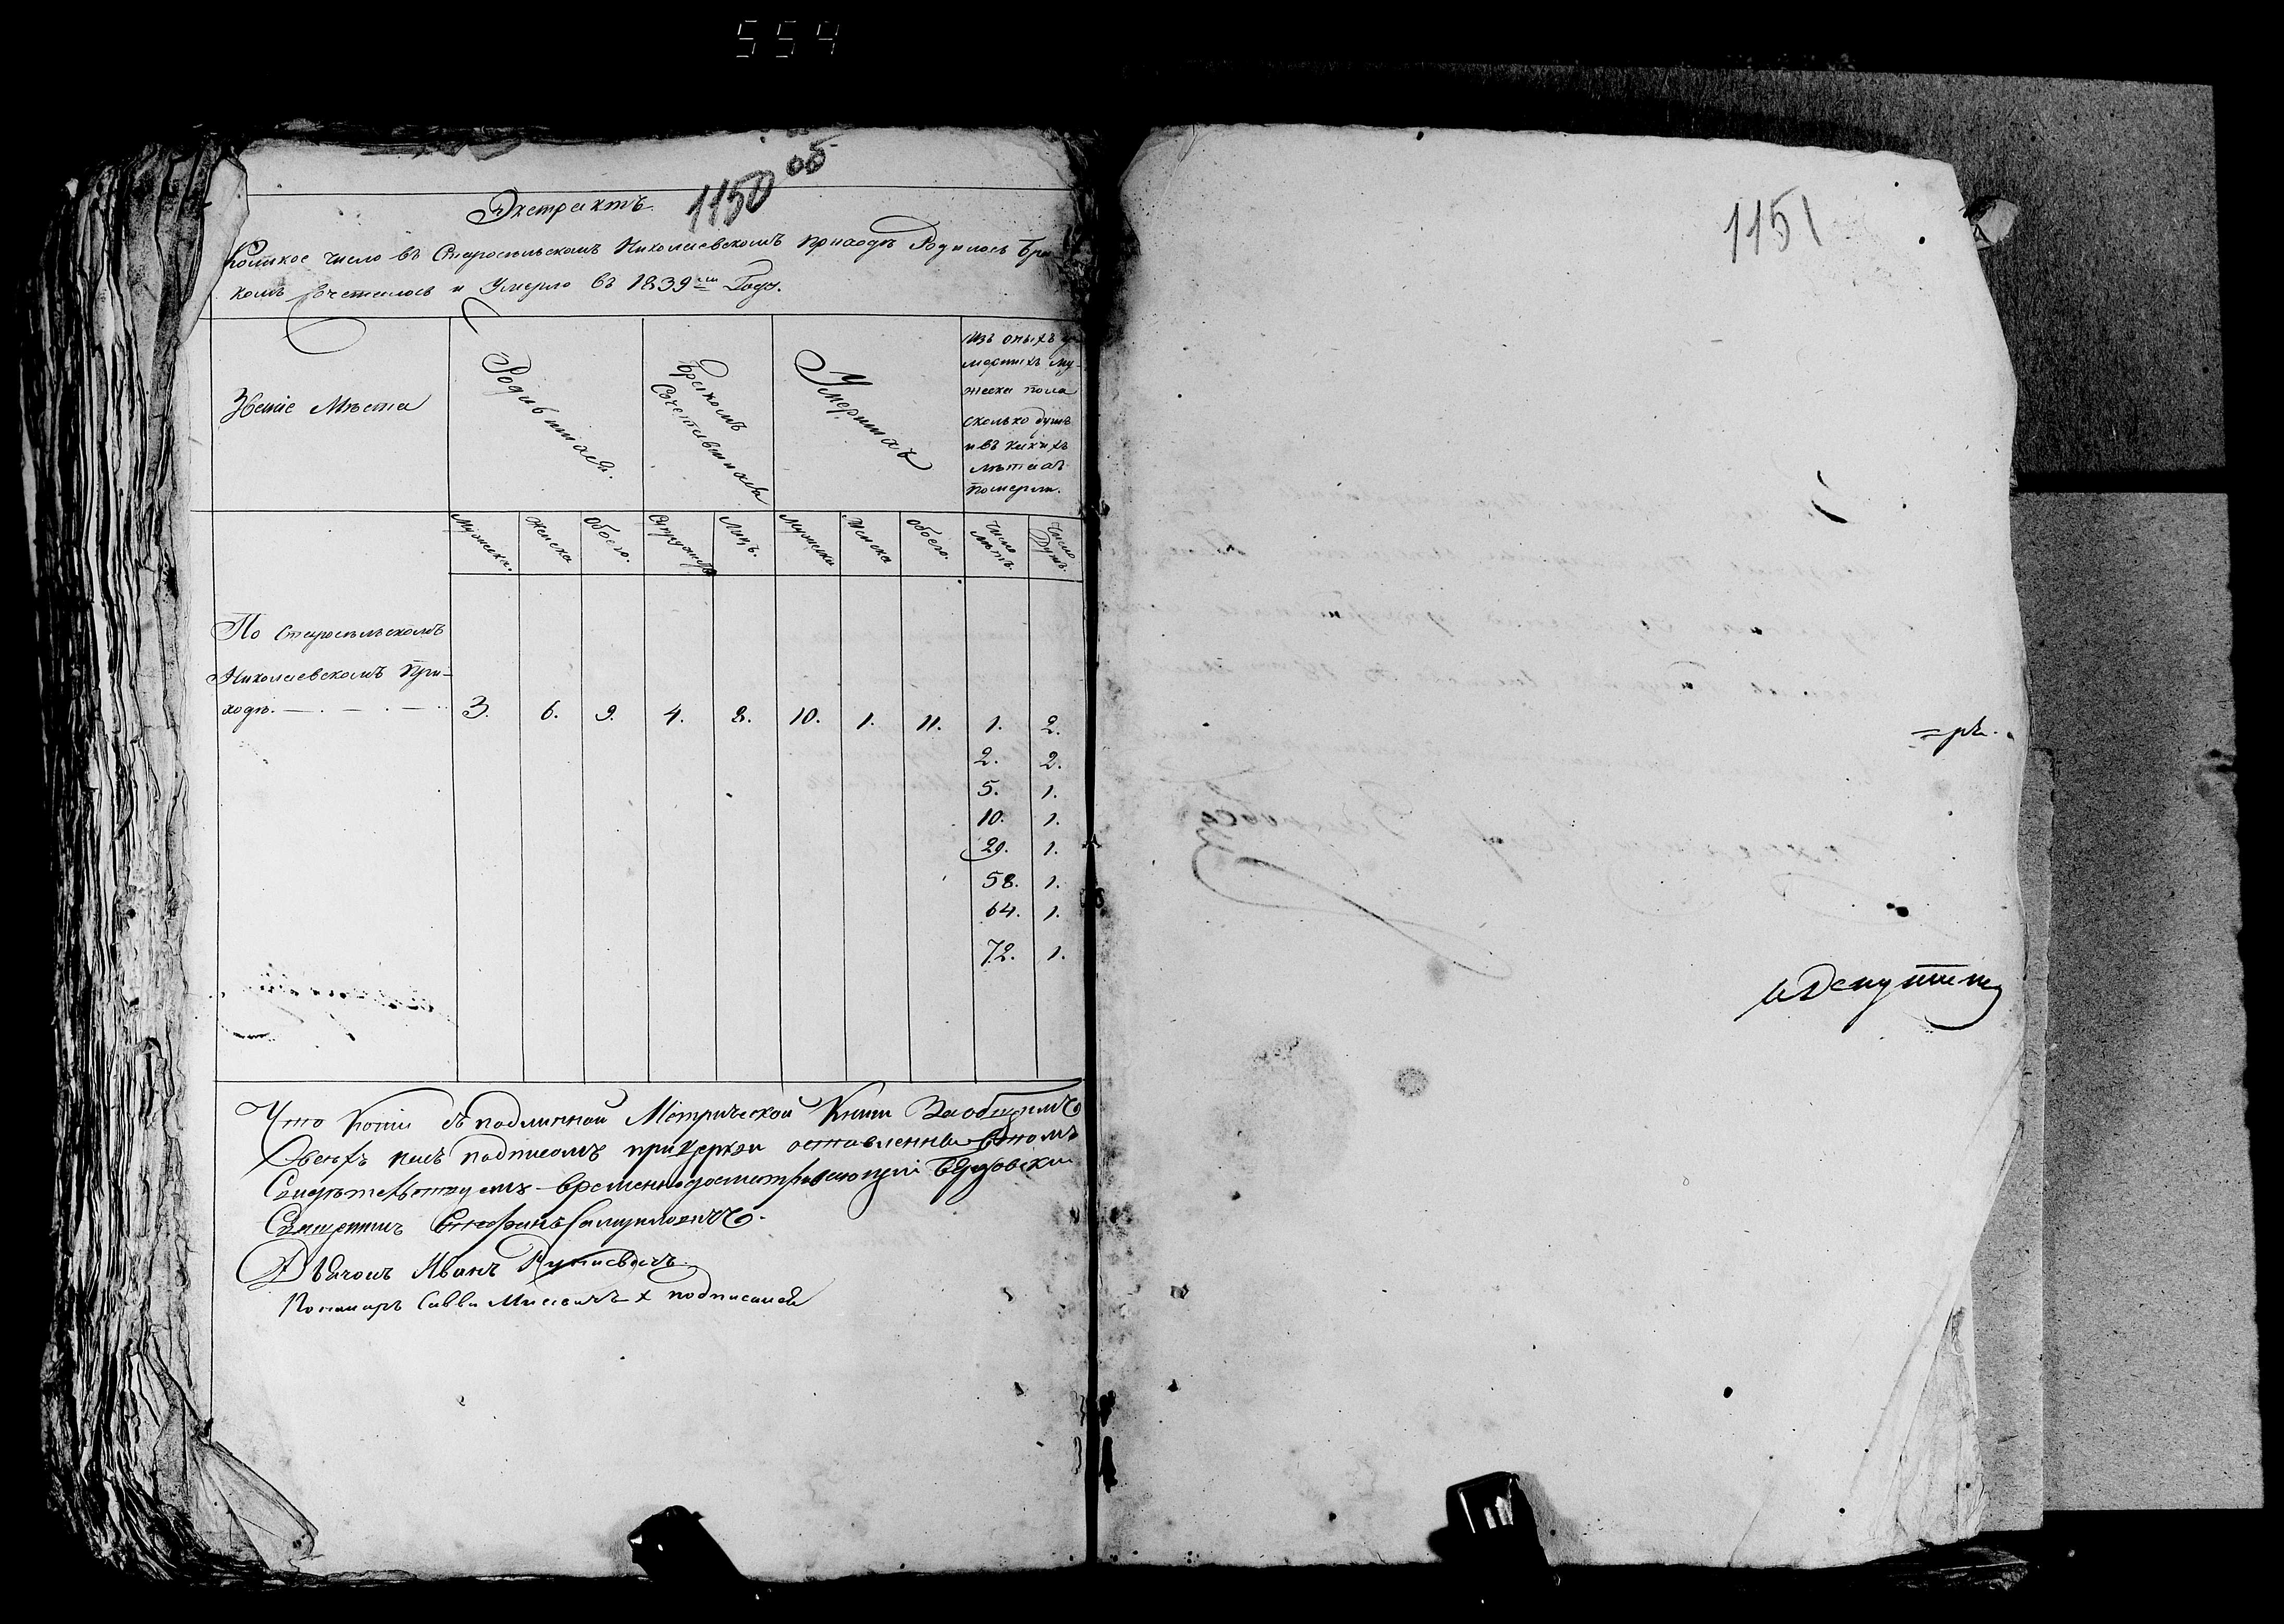 554
1150 об
Экстрактъ
Коликое число въ Старосельскомъ Николаевскомъ приходе Родилось Бра
комъ сочеталось и Умерло въ 1839мъ Году.
Званіе Места
Родившихся.
Бракомъ
Сочетавшихся
Умершихъ
Изъ оныхъ у
мершихъ му-
жеска пола
сколько душъ
и въ какихъ
летахъ
померли.
Мужеска.
Женска
обоего.
Супружествъ
Лицъ.
Мужеска
Женска
обоего.
Число
летъ.
Число
Душъ.
По Старосельскомъ
Николаевскомъ При-
ходе. — . — . — .
3. 6. 9. 4. 8. 10. 1. 11. 1. 2.
2. 2.
5. 1.
10. 1.
29. 1.
58. 1.
64. 1.
72. 1.
Что Копія съ подлинной Метрической Книги За общимъ
всехъ насъ подписомъ при церкви оставленны въ томъ
Свидетельствуемъ временно
Священникъ Стефанъ Самуиловичъ.
Дьячокъ Иванъ
Пономарь Савва х подписался
1151
=рь.
и Депутатъ